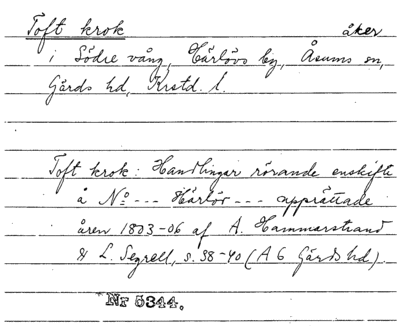 Toft krok åker
i Södre vång, Härlövs by, Åsums sn,
Gärds hd, Krstd. l.
Toft krok: Handlingar rörande enskifte
å No --- Härlöv --- upprättade
åren 1803-06 af A. Hammarstrand
& L. Segrell, s. 38-40 (A 6 Gärds hd).
Nr 5344.